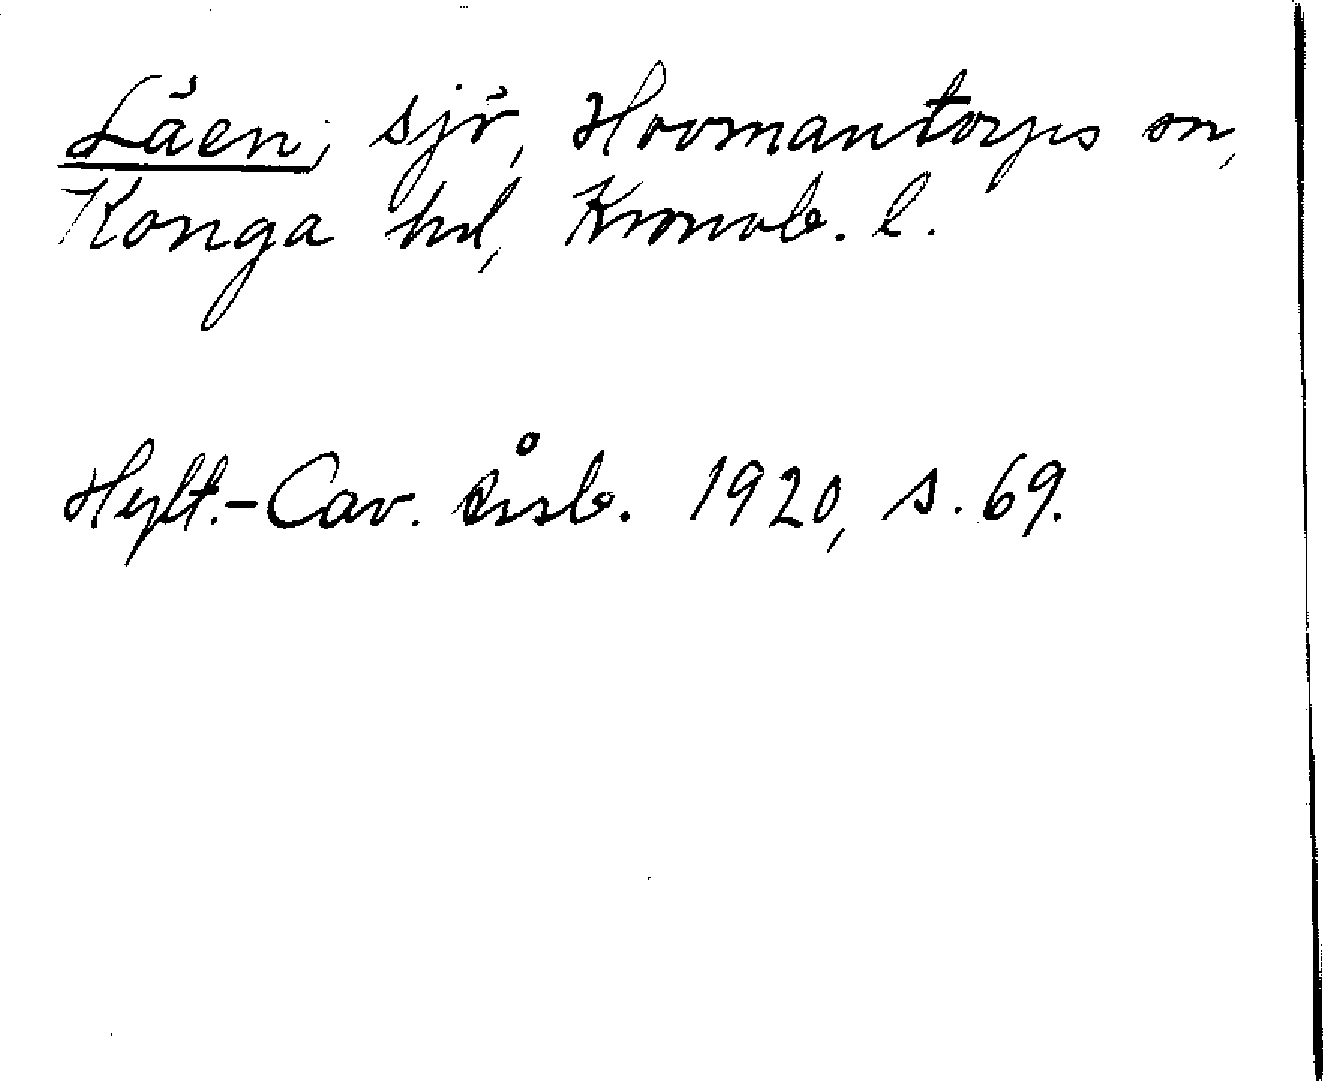 Läen, sjö, Hovmantorps sn,
Konga hd, Kronob. l.
Hylt.-Cav. årsb. 1920, s. 69.